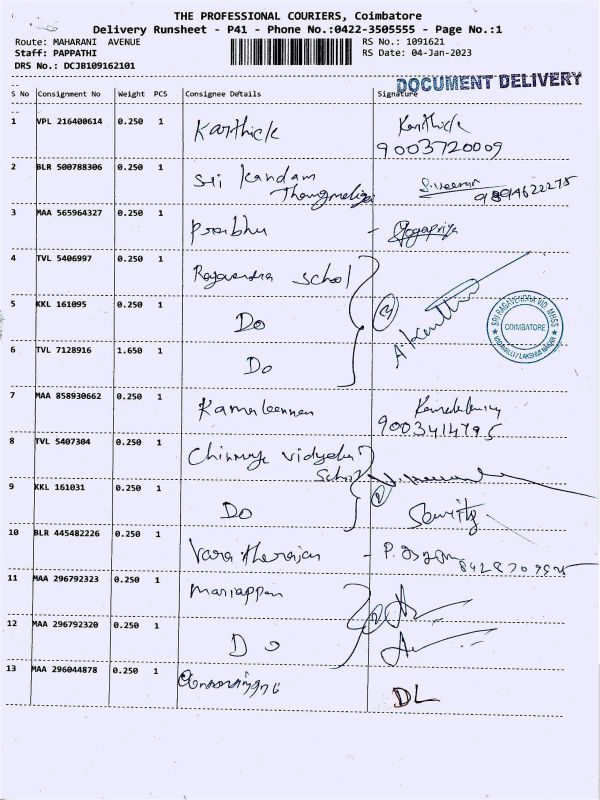 THE PROFESSIONAL COURIERS, Coimbatore
Delivery Runsheet - P41 - Phone No.:0422-3505555 - Page No.:1
Route: MAHARANI AVENUE RS No.: 1091621
Staff: PAPPATHI RS Date: 04-Jan-2023
DRS No.: DCJB109162101
DOCUMENT DELIVERY
S No Consignment No Weight PCS Consignee Details Signature
1 VPL 216400614 0.250 1 Karthick Karthick
9003720009
2 BLR 500788306 0.250 1 Sri Kandam
3 MAA 565964327 0.250 1 Prabhu -
4 TVL 5406997 0.250 1 Ragavendra School
5 KKL 161095 0.250 1 Do 3
6 TVL 7128916 1.650 1 Do
SRI RAGAVENDRA VID. MHSS
COIMBATORE
7 MAA 858930662 0.250 1
9003414795
8 TVL 5407304 0.250 1 Chinmaya
School
9 KKL 161031 0.250 1 Do 2
10 BLR 445482226 0.250 1 Varatharajan -
11 MAA 296792323 0.250 1 Mariappan
12 MAA 296792320 0.250 1 Do 2
13 MAA 296044878 0.250 1 DL